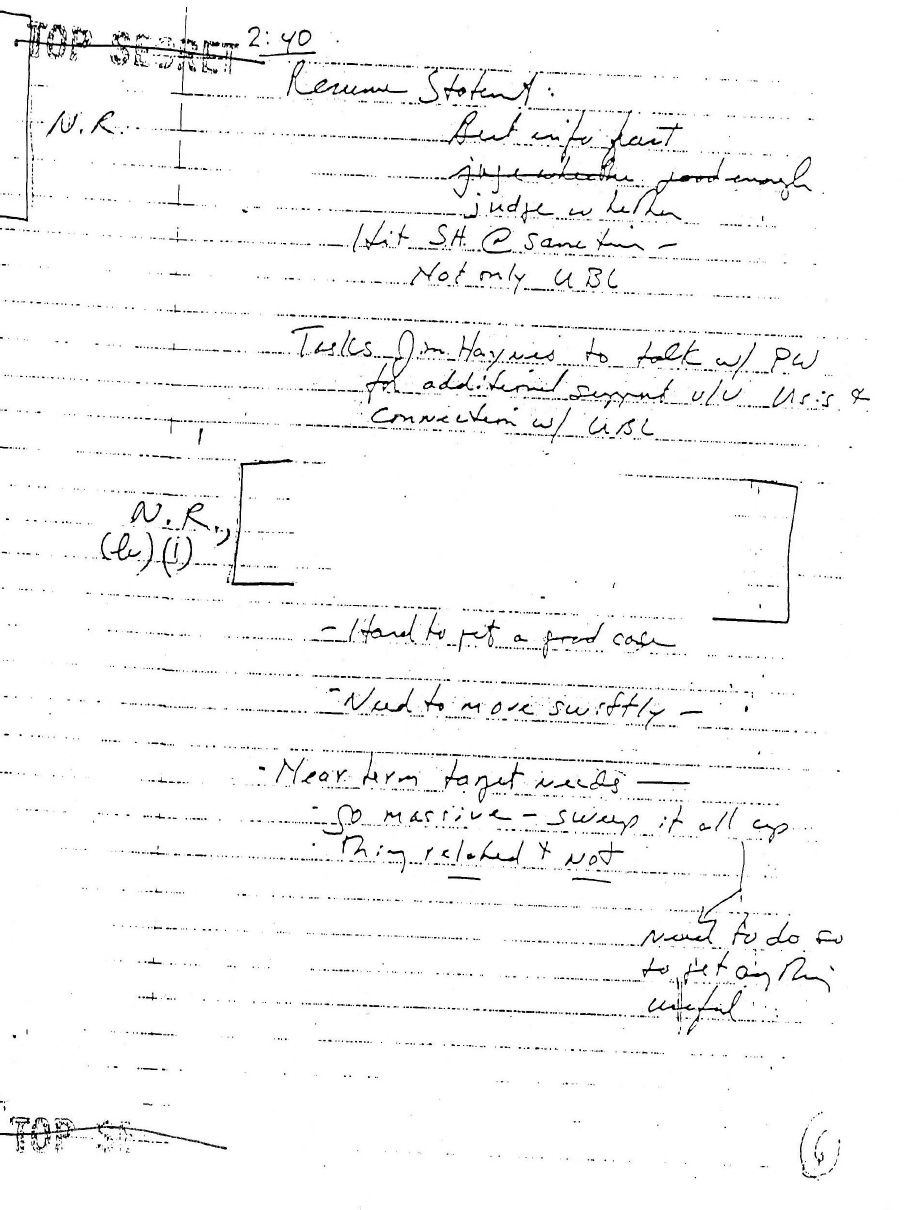 TOP SECRET
2:40
Resume Statement:
N.R.
Best info fast
judge whether good enough
judge whether
Hit S.H. @ same time -
Not only UBL
Tasks Jim Haynes to talk w/ PW
for additional support v/v Usis &
connection w/ UBL
N.R.,
(b)(1)
- Hard to get a good case
- Need to move swiftly -
- Near term target needs —
- go massive - sweep it all up
- Things related & not
need to do so
to get anything
useful
TOP SE
6